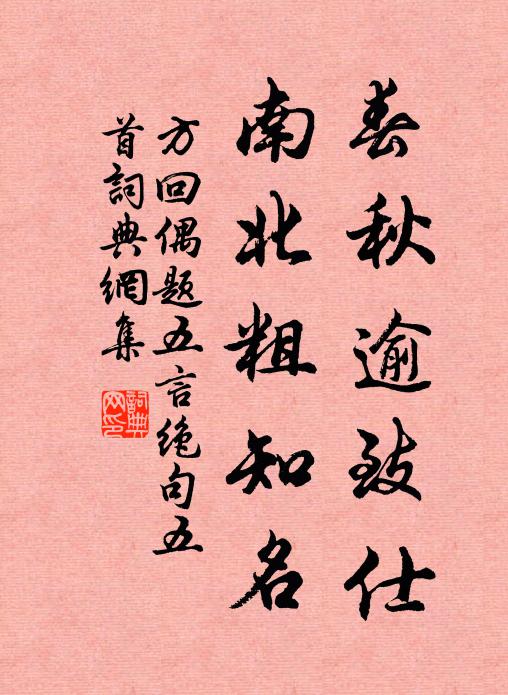 春秋逾致仕
南北粗知名
方回偶题五言绝句五
首詞典網集
詞典
网印